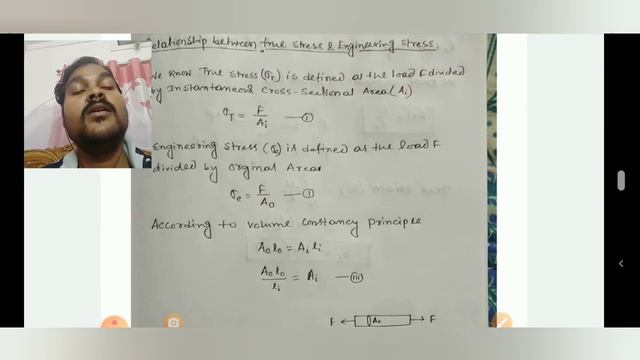 elationship between true stress & Engineering stress.
We know True stress (σT) is defined as the load F divided
by Instantaneous cross-sectional Area (Ai)
σT = F/Ai —(I)
Engineering stress (σe) is defined as the load F
divided by orginal Area
σe = F/A0 —(I)
According to volume constancy principle
A0 l0 = Ai li
A0 l0/li = Ai —(III)
F A0 F